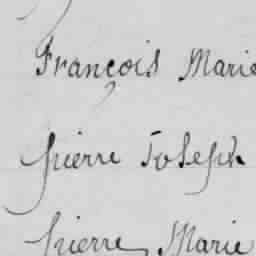 François Marie
Pierre Joseph
Pierre Marie